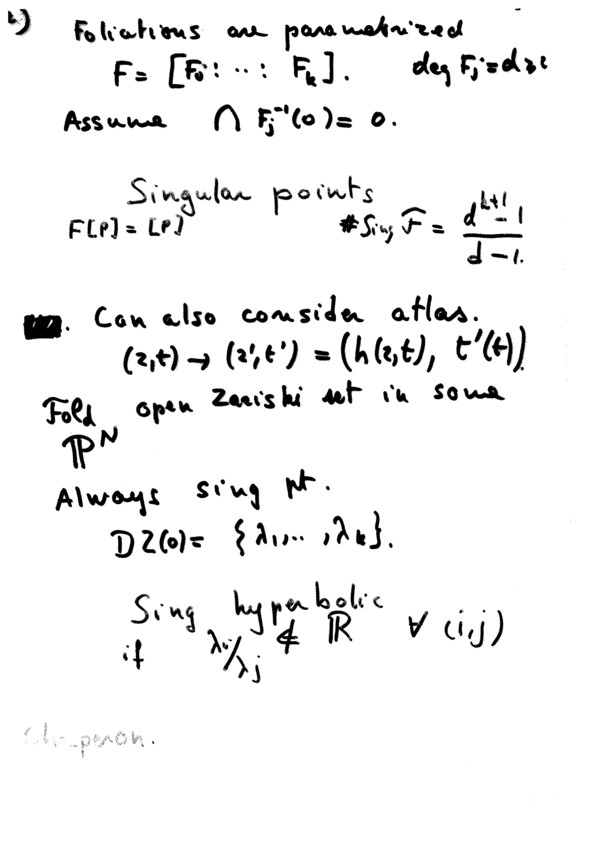 2) Foliations are parametrized
F = [F₀ : ·· : Fₖ]. deg Fⱼ = d ≥ 1
Assume ∩ Fⱼ⁻¹(0) = 0.
Singular points
F[P] = [P] # Sing F̂ = (dᵏ⁺¹ - 1)/(d - 1).
. Can also consider atlas.
(z,t) → (z',t') = (h(z,t), t'(t))
Fold open Zariski set in some
ℙᴺ
Always sing pt.
DZ(0) = {λ₁,.. , λₖ}.
Sing hyperbolic
if λᵢ/λⱼ ∉ ℝ ∀ (i,j)
Chaperon.